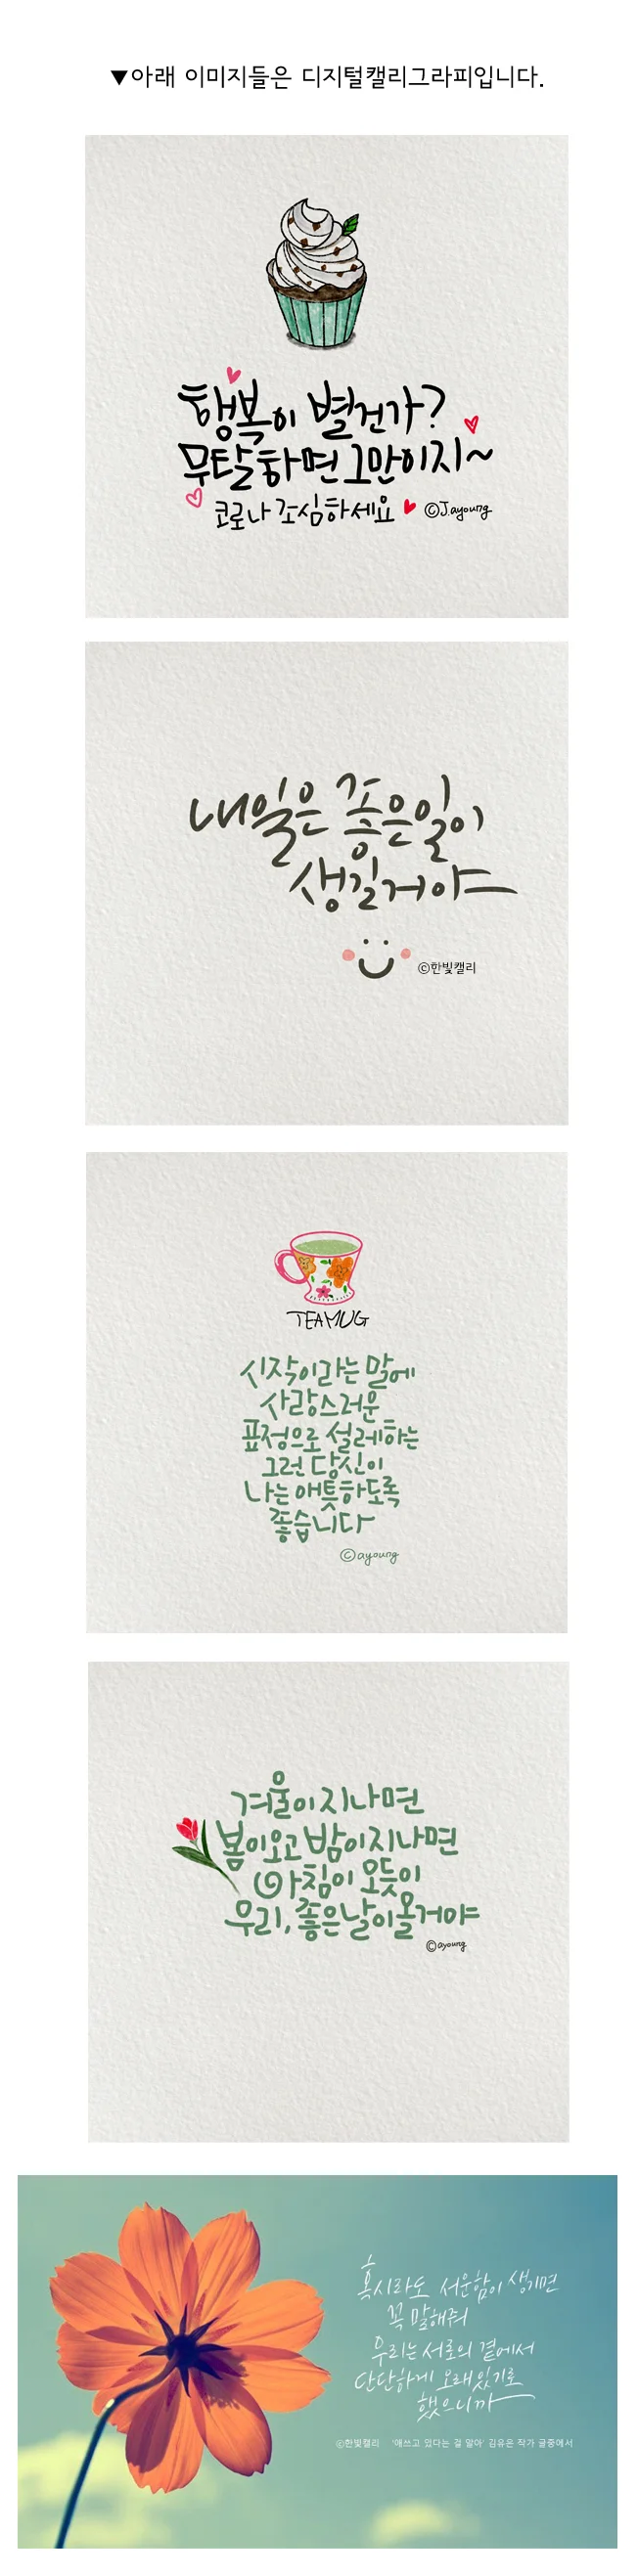 ▼아래 이미지들은 디지털캘리그라피입니다.
행복이 별건가?
무탈하면 그만이지~
코로나 조심하세요 ©J.ayoung
내일은 좋은일이
생길거야
©한빛캘리
TEAMUG
시작이라는 말에
사랑스러운
표정으로 설레하는
그런 당신이
나는 애틋하도록
좋습니다
©ayoung
겨울이지나면
봄이오고 밤이지나면
아침이 오듯이
우리, 좋은날이올거야
©ayoung
혹시라도 서운함이 생기면
꼭 말해줘
우리는 서로의 곁에서
단단하게 오래있기로
했으니까
©한빛캘리 '애쓰고 있다는 걸 알아' 김유은 작가 글중에서